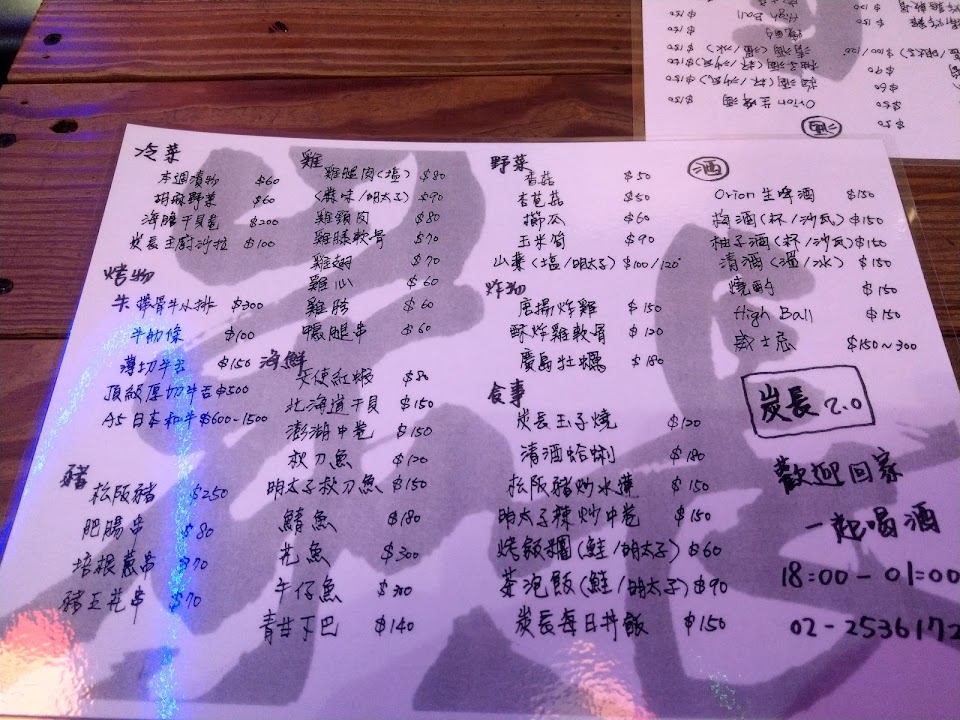 冷菜
本週漬物 $60
胡麻野菜 $60
海膽干貝卷 $200
炭長主廚沙拉 $100
烤物
牛 帶骨牛小排 $300
牛肋條 $100
薄切牛舌 $150
頂級厚切牛舌 $500
A5日本和牛 $600-1500
豬
松阪豬 $250
肥腸串 $80
培根蔥串 $70
豬五花串 $70
雞
雞腿肉(塩) $80
(蔴味/明太子) $90
雞頸肉 $80
雞膝軟骨 $70
雞翅 $70
雞心 $60
雞胗 $60
鴨腿串 $60
海鮮
天使紅蝦 $80
北海道干貝 $150
澎湖中卷 $150
秋刀魚 $120
明太子秋刀魚 $150
鯖魚 $180
花魚 $300
午仔魚 $300
青甘下巴 $140
野菜
香菇 $50
杏苞菇 $50
櫛瓜 $60
玉米筍 $90
山藥(塩/明太子) $100/120
炸物
唐揚炸雞 $150
酥炸雞軟骨 $120
廣島牡蠣 $180
食事
炭長玉子燒 $120
清酒蛤蜊 $180
松阪豬炒水蓮 $150
明太子辣炒中卷 $150
烤飯糰(鮭/明太子) $60
茶泡飯(鮭/明太子) $90
炭長每日丼飯 $150
酒
Orion 生啤酒 $150
梅酒(杯/沙瓦) $150
柚子酒(杯/沙瓦) $150
清酒(溫/冰) $150
燒酎 $150
High Ball $150
威士忌 $150~300
炭長 2.0
歡迎回家
一起喝酒
18:00-01:00
02-2536172
酒
Orion 生啤酒 $150
梅酒(杯/沙瓦) $150
柚子酒(杯/沙瓦) $150
清酒(溫/冰) $150
燒酎 $150
High Ball $150
$50
$50
$60
$90
$100/120
$150